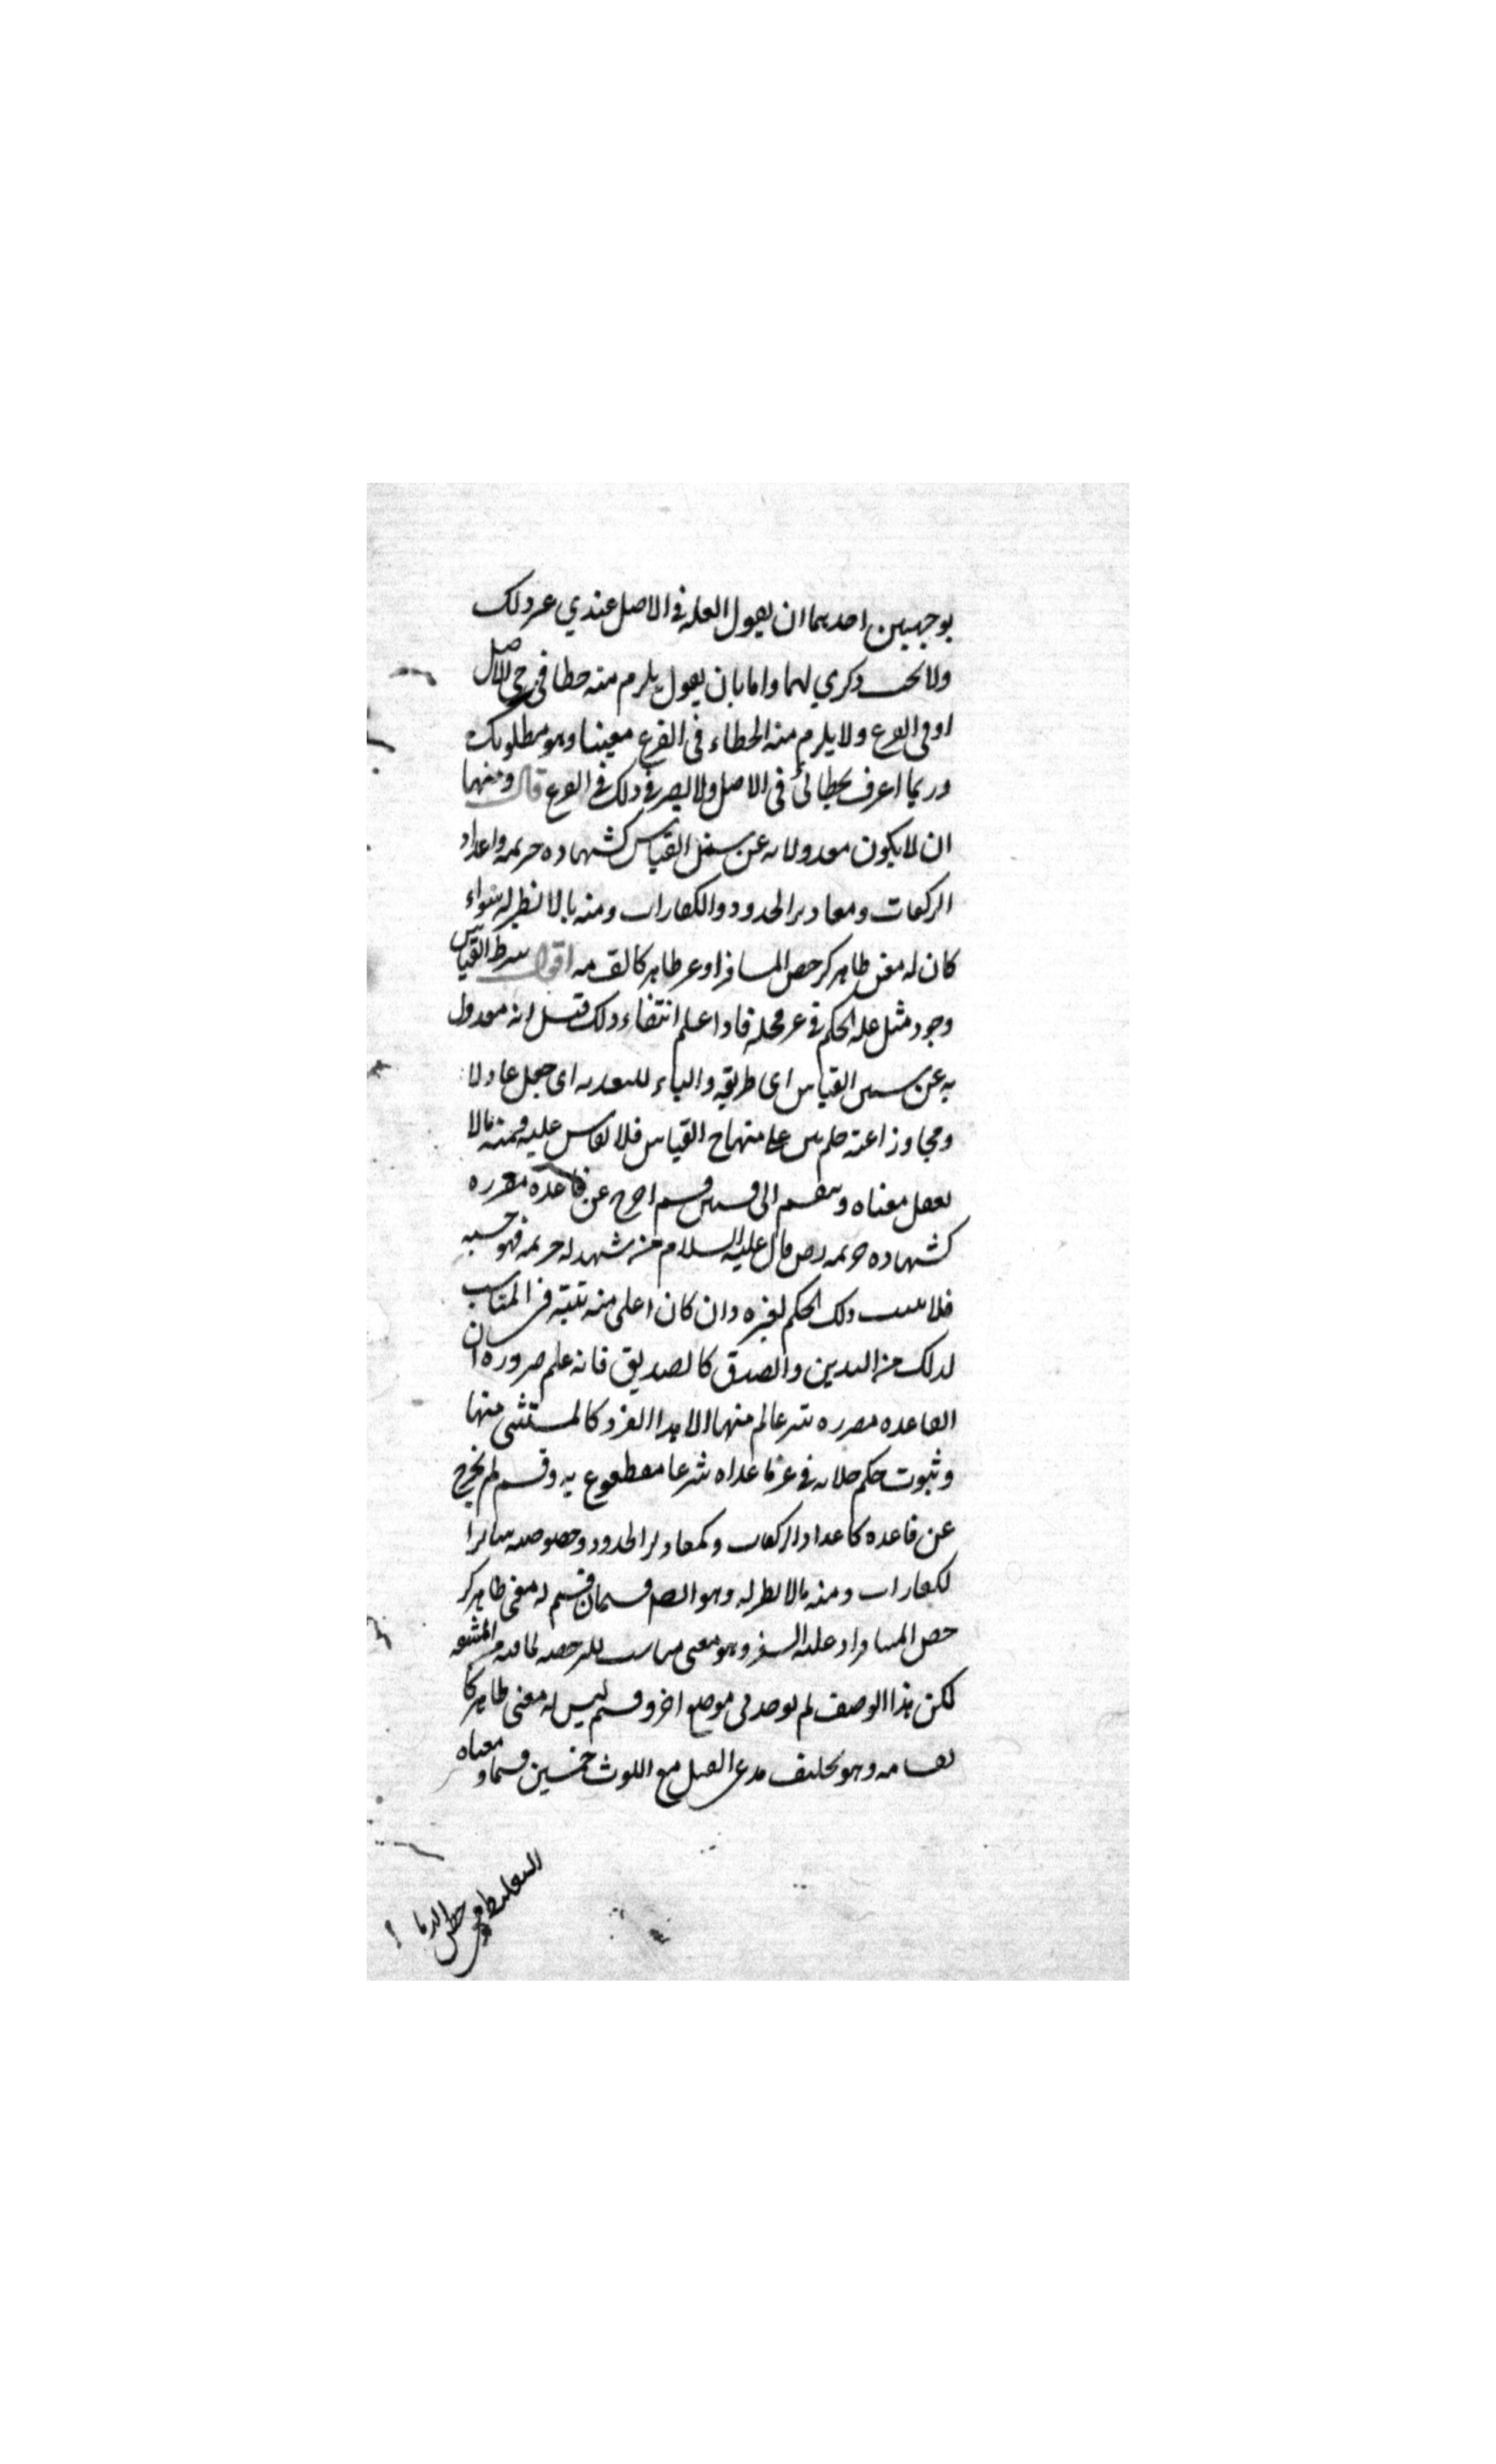 بوجهين احدهما ان يقول العله في الاصل عندي غير ذلك
ولا يجب ذكري لها واما بان يقول يلزم منه خطائي في الاصل
او في الفرع ولا يلزم منه الخطاء في الفرع معينا وهو مطلوبك
وربما اعترف بخطائي في الاصل ولا يضر في ذلك في الفرع قال ومنها
ان لا يكون معدولا به عن سنن القياس كشهاده خزيمه واعداد
الركعات ومقادير الحدود والكفارات ومنه ما لا نظير له سواء
كان له معنى ظاهر كرخص المسافر او غير ظاهر كالقسامه اقول شرط القياس
وجود مثل عله الحكم في غير محله فاذا علم انتفاء ذلك قيل انه معدول
به عن سنن القياس اى طريقه والباء للتعديه اى جعل عادلا
ومجاوزا عنه فلم على منهاج القياس فلا يقاس عليه فمنه ما لا
يعقل معناه وينقسم الى قسمين قسم اخرج عن قاعده مقرره
كشهاده خزيمه رض قال عليه السلام من شهد له خزيمه فهو حسبه
فلا يثبت ذلك الحكم لغيره وان كان اعلى منه رتبه في المناسب
لذلك من التدين والصدق كالصديق فانه علم ضروره ان
القاعده مقرره شرعا لم منها الا هذا الفرد كالمستثنى منها
وثبوت حكم خلافه في غير ما عداه شرعا مقطوع به وقسم لم يخرج
عن قاعده كاعداد الركعات وكمقادير الحدود وخصوصيه سائر ا
لكفارات ومنه ما لا نظير له وهو ايضا قسمان قسم له معنى ظاهر كر
خص المسافر اذ علته السفر وهو معنى مناسب للرخصه لما فيه من المشقه
لكن هذا الوصف لم يوجد في موضع اخر وقسم ليس له معنى ظاهر كا
لقسامه وهو تحليف مدعى القتل مع اللوث خمسين قسما ومعناه
التغليظ في حقن الدما